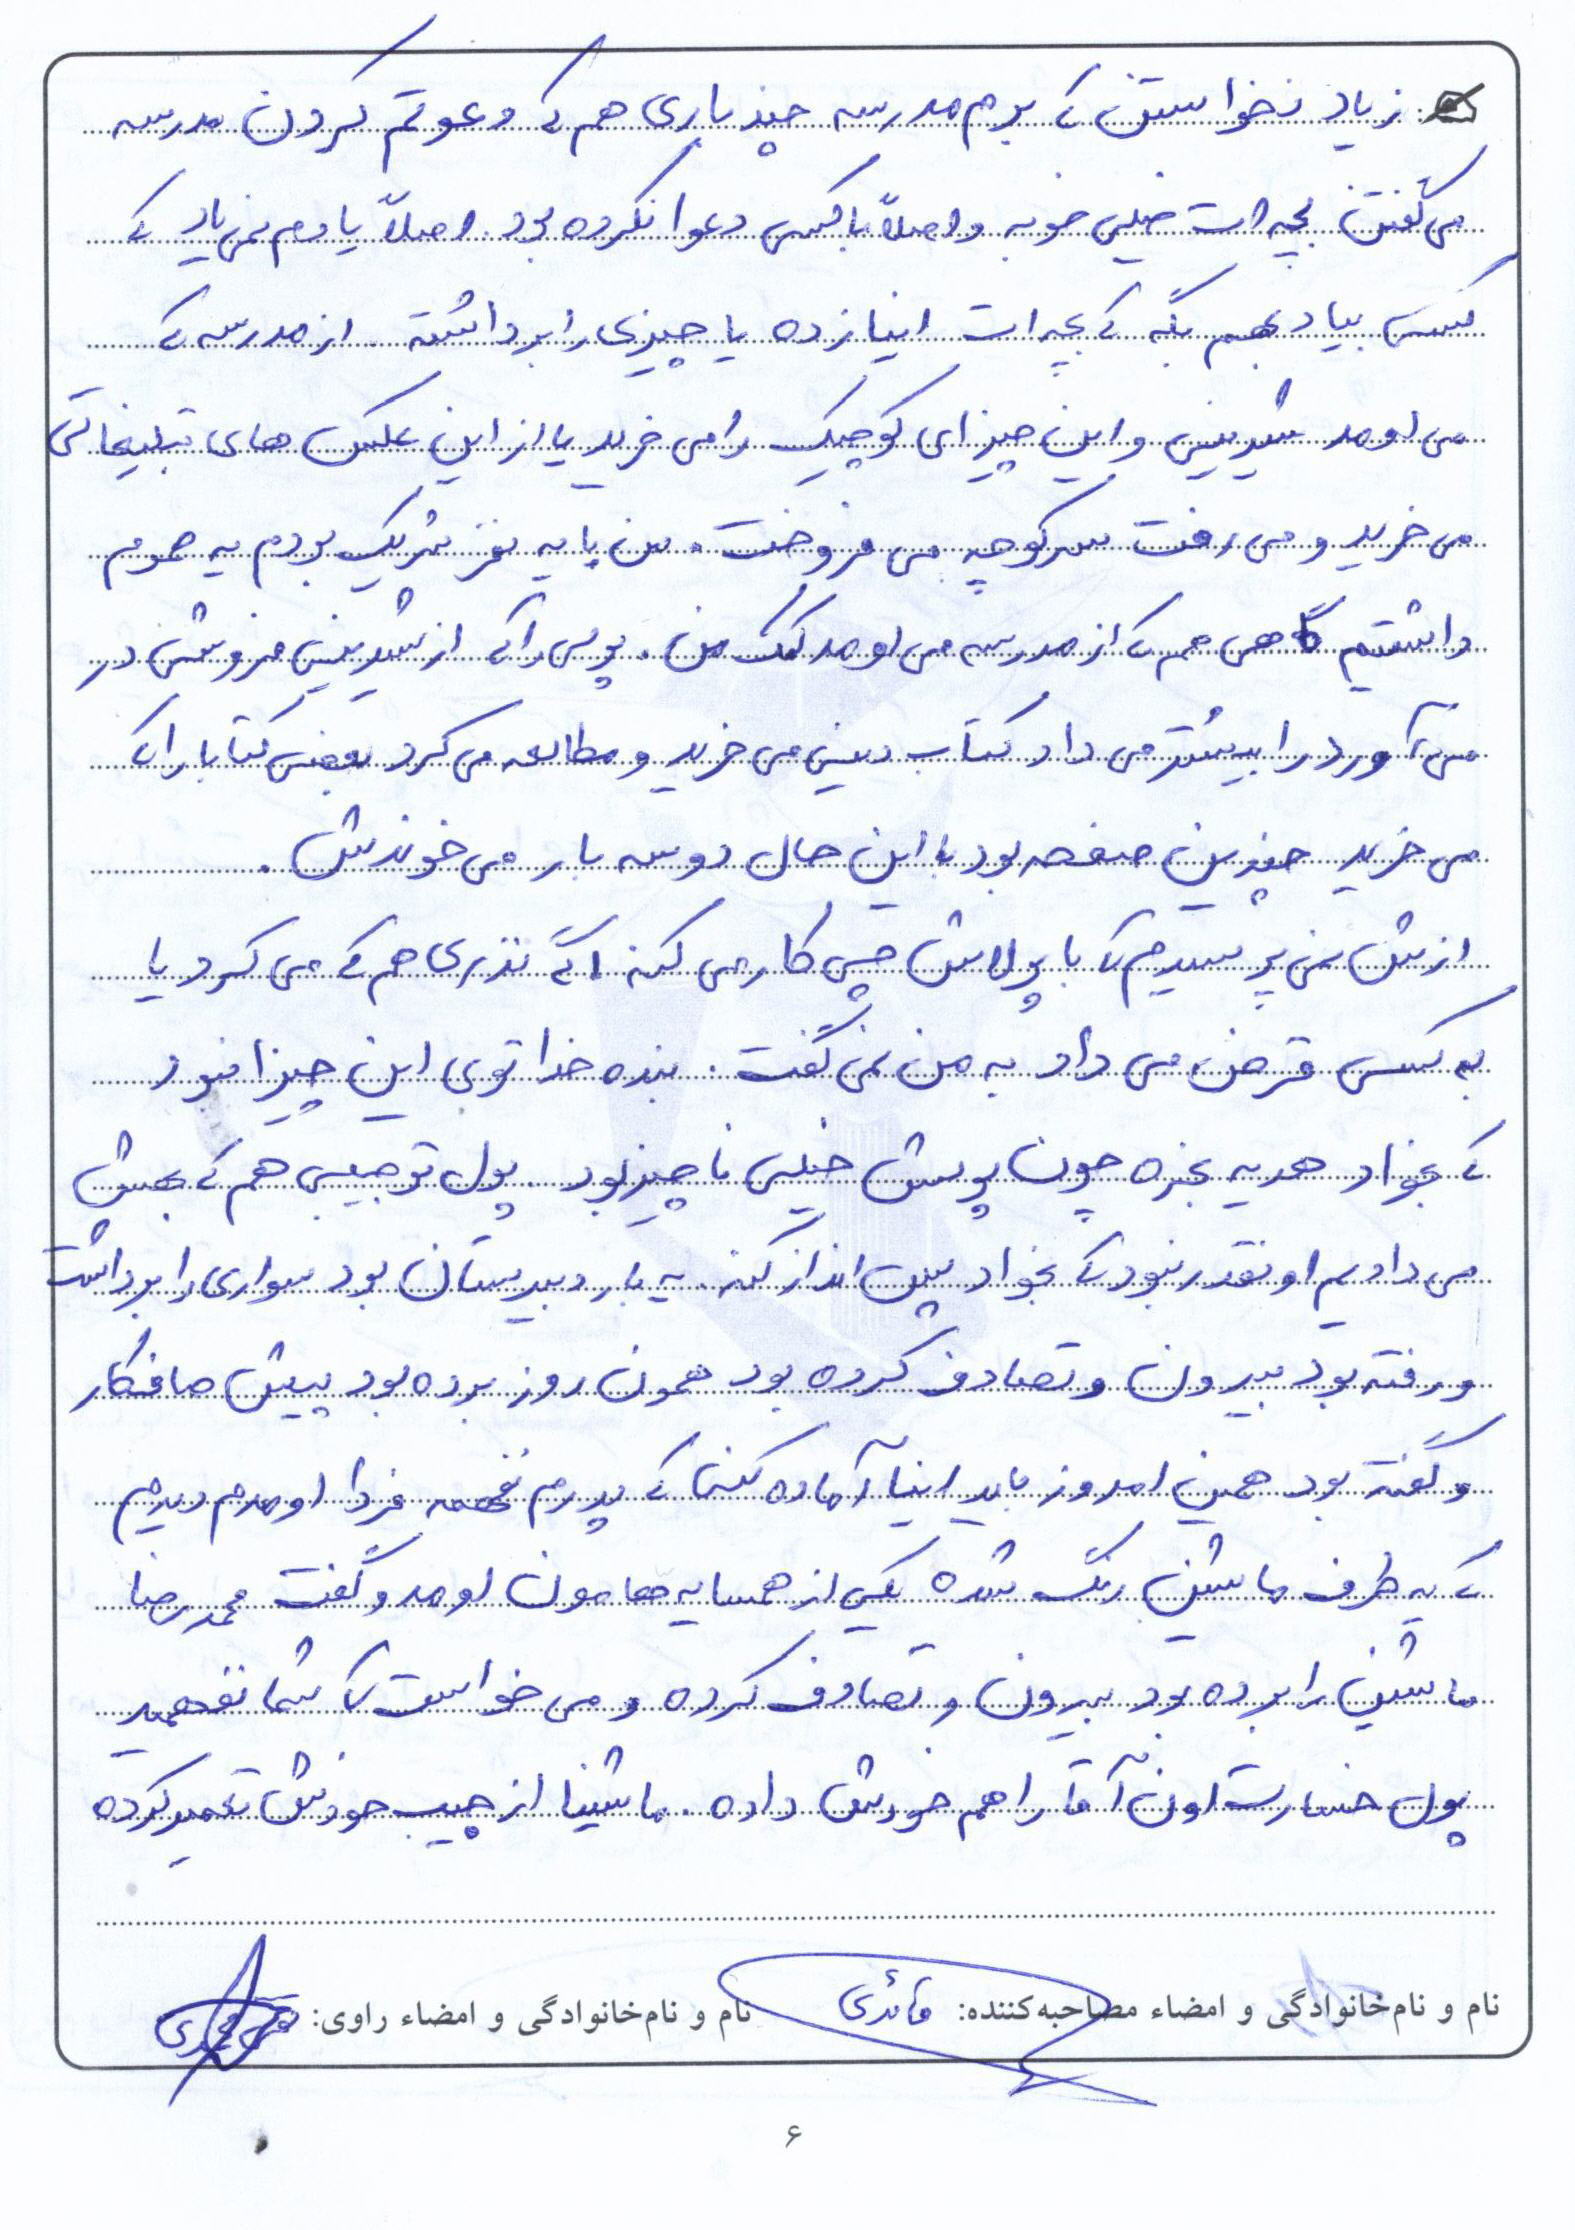 زیاد نخواستن که برم مدرسه چند باری هم که دعوتم کردن مدرسه
می گفتن بچه ات خیلی خوبه و اصلاً با کسی دعوا نکرده بود. اصلاً یادم نمی یاد که
کسی بیاد بهم بگه که بچه ات اینا زده یا چیزی را برداشته. از مدرسه که
می اومد شیرینی و این چیزای کوچیک را می خرید یا از این عکس های تبلیغاتی
می خرید و می رفت سر کوچه می فروخت. من با یه نفر شریک بودم یه حموم
داشتیم گاهی هم که از مدرسه می اومد کمک من. پولی را که از شیرینی فروشی در
می آورد را بیشتر می داد کتاب دینی می خرید و مطالعه می کرد بعضی کتابا را که
می خرید چندین صفحه بود با این حال دو سه بار می خوندش.
ازش نمی پرسیدم که با پولاش چی کار می کنه اگه نذری هم که می کرد یا
به کسی قرض می داد به من نمی گفت. بنده خدا توی این چیزا نبود
که بخواد هدیه بخره چون پولش خیلی ناچیز بود. پول تو جیبی هم که بهش
می دادیم اونقدر نبود که بخواد پس انداز کنه. یه بار دبیرستان بود سواری را برداشت
و رفته بود بیرون و تصادف کرده بود همون روز برده بود پیش صافکار
و گفته بود همین امروز باید اینا آماده کنی که پدرم نفهمه فردا اومدم دیدم
که یه طرف ماشین رنگ شده یکی از همسایه هامون اومد و گفت محمدرضا
ماشین را برده بود بیرون و تصادف کرده و می خواست که شما نفهمید
پول خسارت اون آقا را هم خودش داده. ماشینا از جیب خودش تعمیر کرده
نام و نام‌خانوادگی و امضاء مصاحبه‌کننده: قائدی نام و نام‌خانوادگی و امضاء راوی:
۶